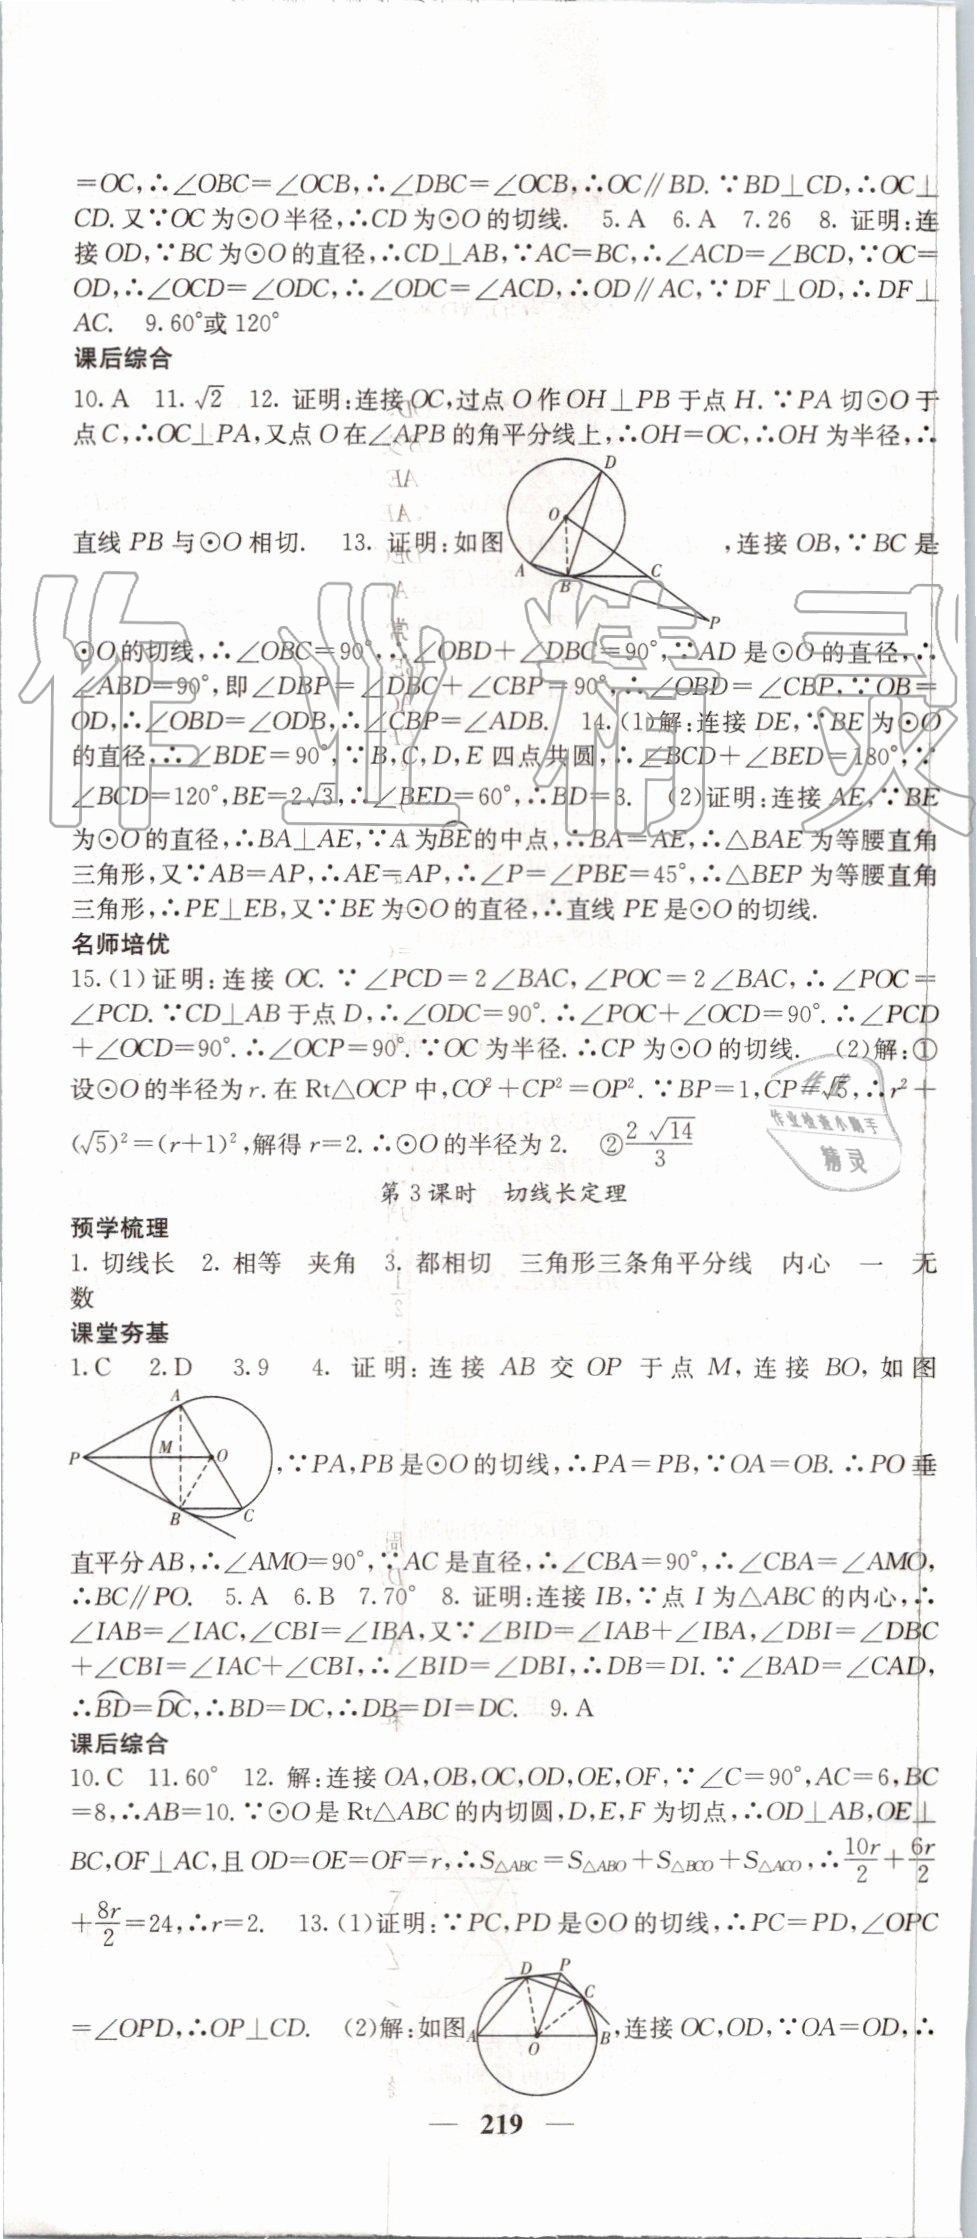 =OC,∴∠OBC=∠OCB,∴∠DBC=∠OCB,∴OC∥BD.∵BD⊥CD,∴OC⊥
CD.又∵OC为⊙O半径,∴CD为⊙O的切线. 5.A 6.A 7.26 8. 证明:连
接OD,∵BC为⊙O的直径,∴CD⊥AB,∵AC=BC,∴∠ACD=∠BCD,∵OC=
OD,∴∠OCD=∠ODC,∴∠ODC=∠ACD,∴OD∥AC,∵DF⊥OD,∴DF⊥
AC. 9.60°或120°
课后综合
10.A 11.√2 12. 证明:连接OC,过点O作OH⊥PB于点H.∵PA切⊙O于
点C,∴OC⊥PA,又点O在∠APB的角平分线上,∴OH=OC,∴OH为半径,∴
直线PB与⊙O相切. 13. 证明:如图 D O A B C P ,连接OB,∵BC是
⊙O的切线,∴∠OBC=90°,∴∠OBD+∠DBC=90°,∵AD是⊙O的直径,∴
∠ABD=90°,即∠DBP=∠DBC+∠CBP=90°,∴∠OBD=∠CBP,∵OB=
OD,∴∠OBD=∠ODB,∴∠CBP=∠ADB. 14.(1)解:连接DE,∵BE为⊙O
的直径,∴∠BDE=90°,∵B,C,D,E四点共圆,∴∠BCD+∠BED=180°,∵
∠BCD=120°,BE=2√3,∴∠BED=60°,∴BD=3. (2)证明:连接AE,∵BE
为⊙O的直径,∴BA⊥AE,∵A为⌒BE的中点,∴BA=AE,∴△BAE为等腰直角
三角形,又∵AB=AP,∴AE=AP,∴∠P=∠PBE=45°,∴△BEP为等腰直角
三角形,∴PE⊥EB,又∵BE为⊙O的直径,∴直线PE是⊙O的切线.
名师培优
15.(1)证明:连接OC.∵∠PCD=2∠BAC,∠POC=2∠BAC,∴∠POC=
∠PCD.∵CD⊥AB于点D,∴∠ODC=90°.∴∠POC+∠OCD=90°.∴∠PCD
+∠OCD=90°.∴∠OCP=90°.∵OC为半径.∴CP为⊙O的切线. (2)解:①
设⊙O的半径为r.在Rt△OCP中,CO²+CP²=OP².∵BP=1,CP=√5,∴r²+
(√5)²=(r+1)²,解得r=2.∴⊙O的半径为2. ②2√14/3
第3课时 切线长定理
预学梳理
1. 切线长 2. 相等 夹角 3. 都相切 三角形三条角平分线 内心 一 无
数
课堂夯基
1.C 2.D 3.9 4. 证明:连接AB交OP于点M,连接BO,如图
A P M O B C ,∵PA,PB是⊙O的切线,∴PA=PB,∵OA=OB.∴PO垂
直平分AB,∴∠AMO=90°,∵AC是直径,∴∠CBA=90°,∴∠CBA=∠AMO,
∴BC∥PO. 5.A 6.B 7.70° 8. 证明:连接IB,∵点I为△ABC的内心,∴
∠IAB=∠IAC,∠CBI=∠IBA,又∵∠BID=∠IAB+∠IBA,∠DBI=∠DBC
+∠CBI=∠IAC+∠CBI,∴∠BID=∠DBI,∴DB=DI.∵∠BAD=∠CAD,
∴⌒BD=⌒DC,∴BD=DC,∴DB=DI=DC. 9.A
课后综合
10.C 11.60° 12. 解:连接OA,OB,OC,OD,OE,OF,∵∠C=90°,AC=6,BC
=8,∴AB=10.∵⊙O是Rt△ABC的内切圆,D,E,F为切点,∴OD⊥AB,OE⊥
BC,OF⊥AC,且OD=OE=OF=r,∴S△ABC=S△ABO+S△BCO+S△ACO,∴10r/2+6r/2
+8r/2=24,∴r=2. 13.(1)证明:∵PC,PD是⊙O的切线,∴PC=PD,∠OPC
=∠OPD,∴OP⊥CD. (2)解:如图 D P C A O B ,连接OC,OD,∵OA=OD,∴
— 219 —
作业精灵
作业检查小助手
精灵